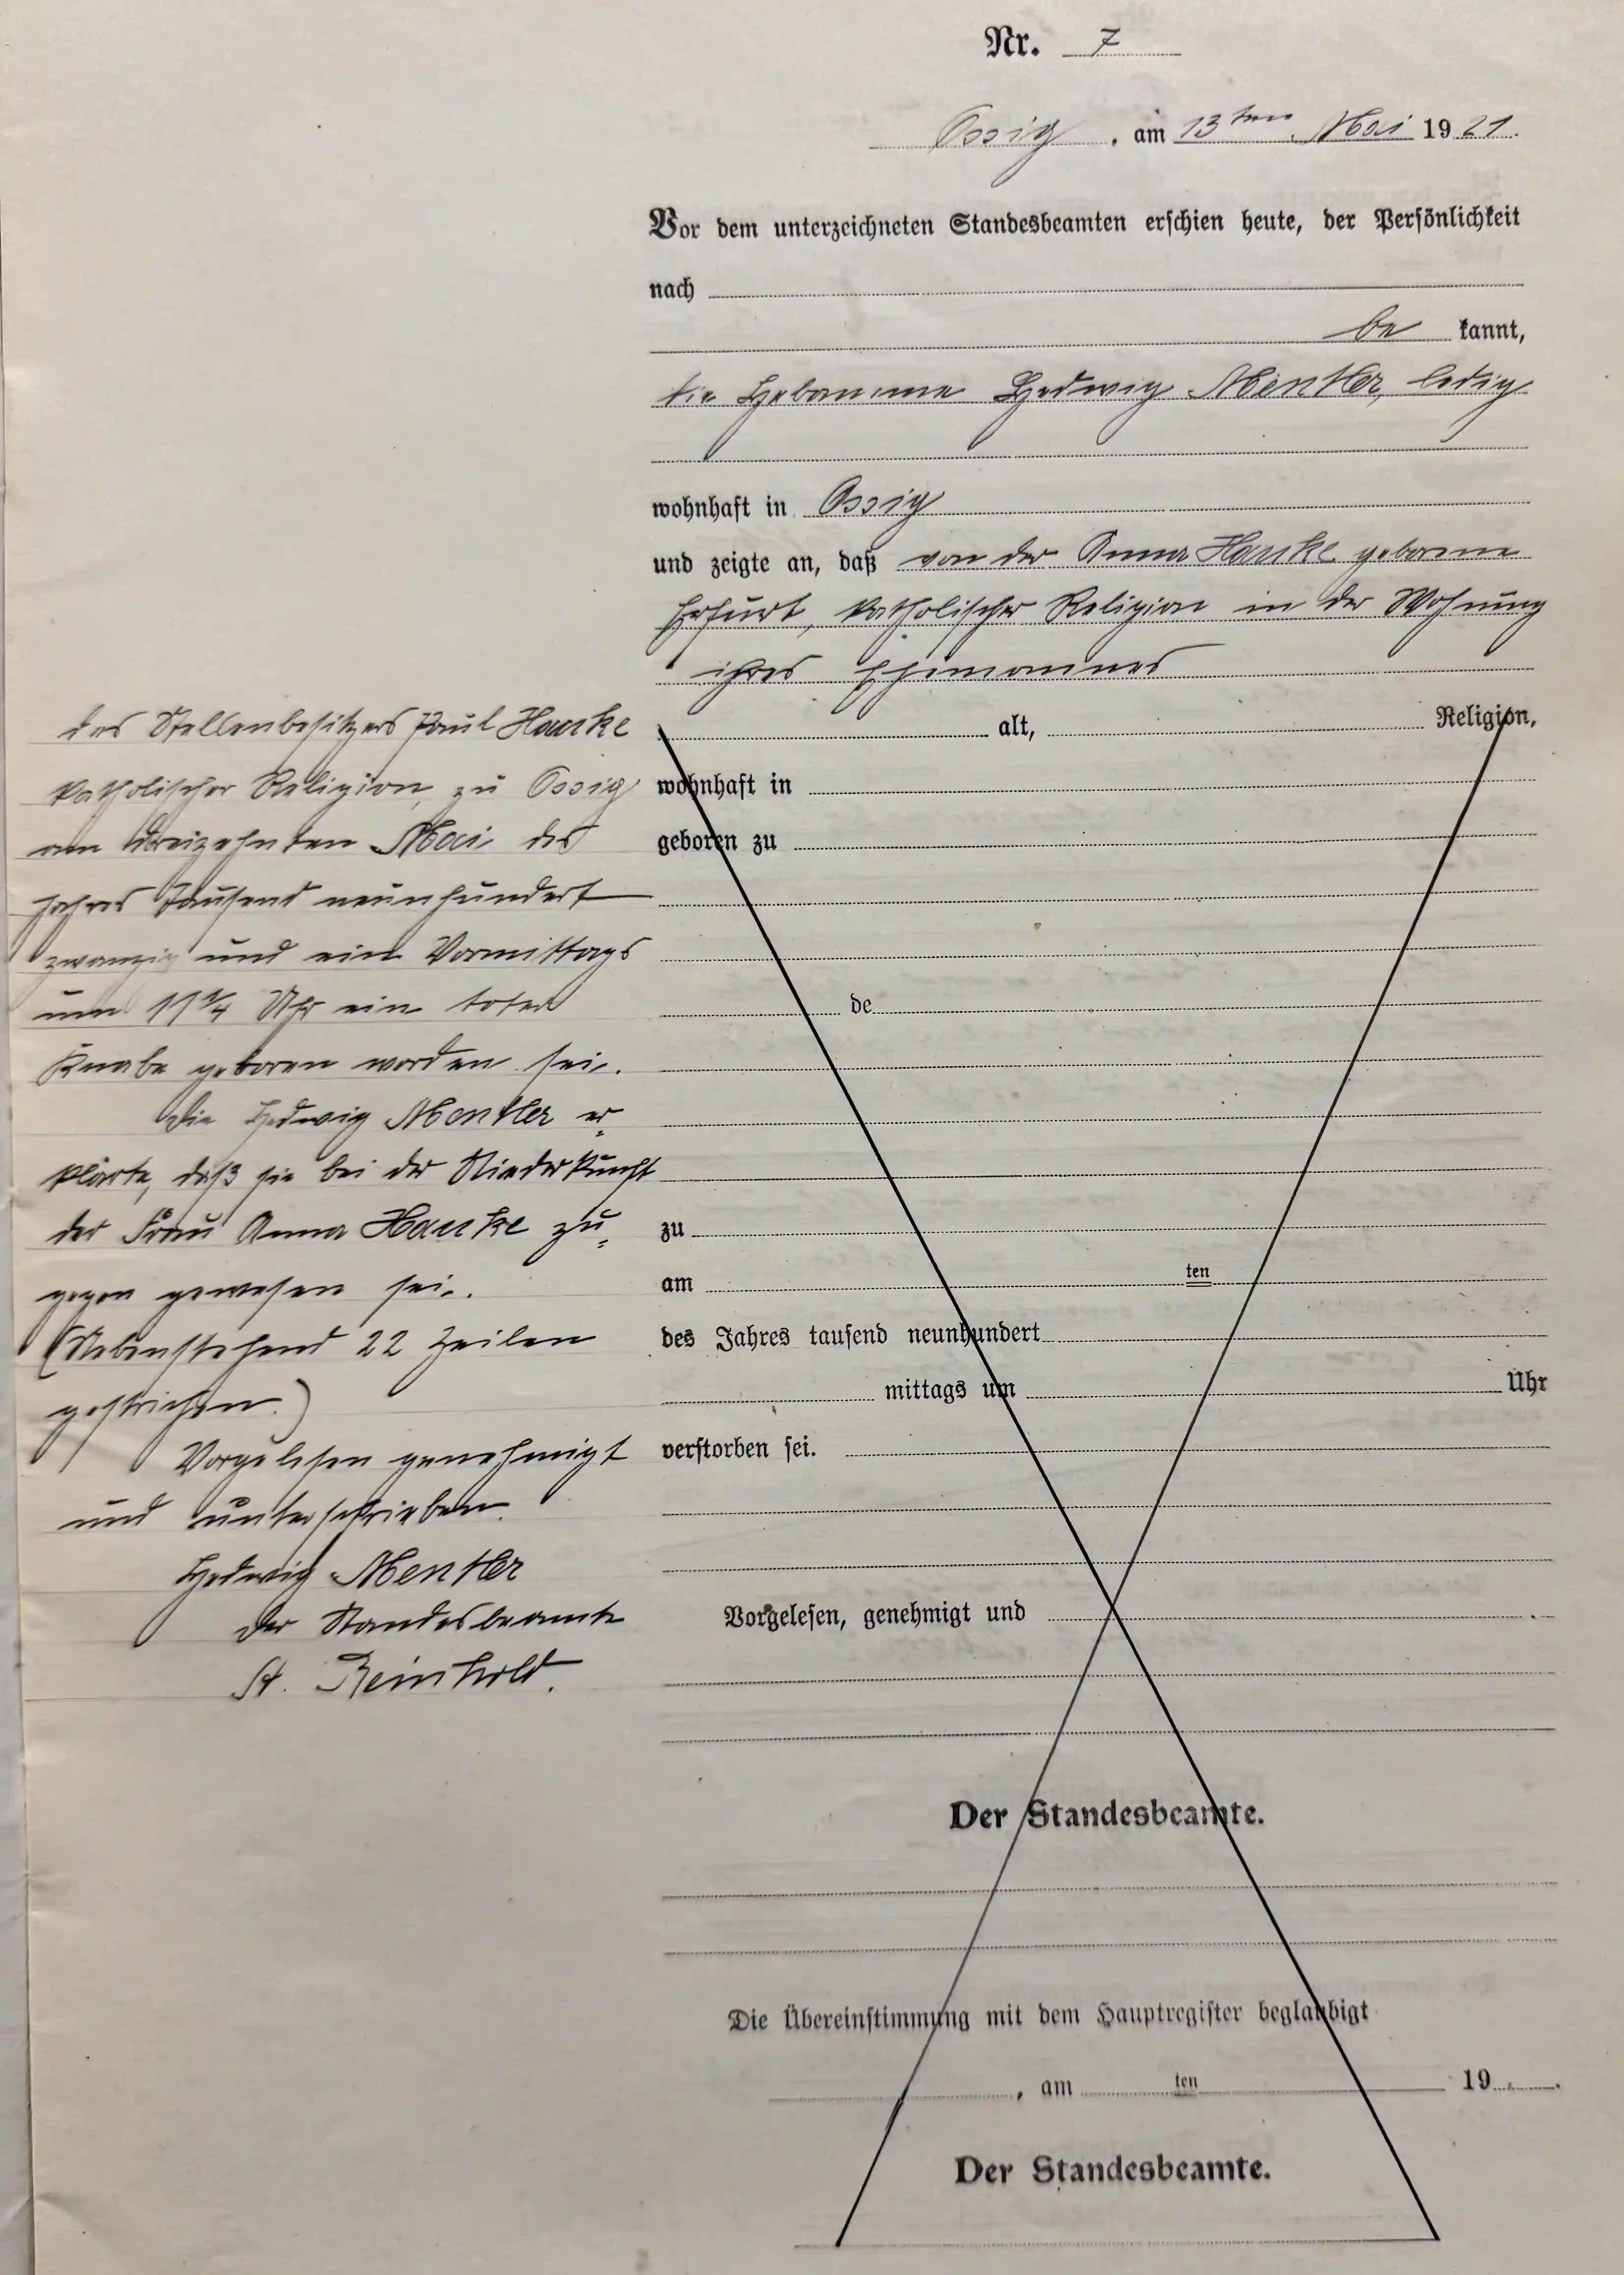 Nr. 7
Ossig, am 13ten Mai 1921.
Vor dem unterzeichneten Standesbeamten erschien heute, der Persönlichkeit
nach
be kannt,
die Hebamme Hedwig Mentler, ledig
wohnhaft in Ossig
und zeigte an, daß von der Anna Hanke geborene
Erfurt, katholischer Religion in der Wohnung
ihres Ehemannes
des Stellenbesitzers Paul Hanke
katholischer Religion, zu Ossig
am dreizehnten Mai des
Jahres Tausend neunhundert
zwanzig und ein Vormittags
um 11¼ Uhr ein toter
Knabe geboren worden sei.
Die Hedwig Mentler er-
klärte, daß sie bei der Niederkunft
der Frau Anna Hanke zu-
gegen gewesen sei.
(Nebenstehend 22 Zeilen
gestrichen.)
Vorgelesen genehmigt
und unterschrieben.
Hedwig Mentler
Der Standesbeamte
St. Reinhold.
alt, Religion,
wohnhaft in
geboren zu
de
zu
am ten
des Jahres tausend neunhundert
mittags um Uhr
verstorben sei.
Vorgelesen, genehmigt und
Der Standesbeamte.
Die Übereinstimmung mit dem Hauptregister beglaubigt
, am ten 19 .
Der Standesbeamte.